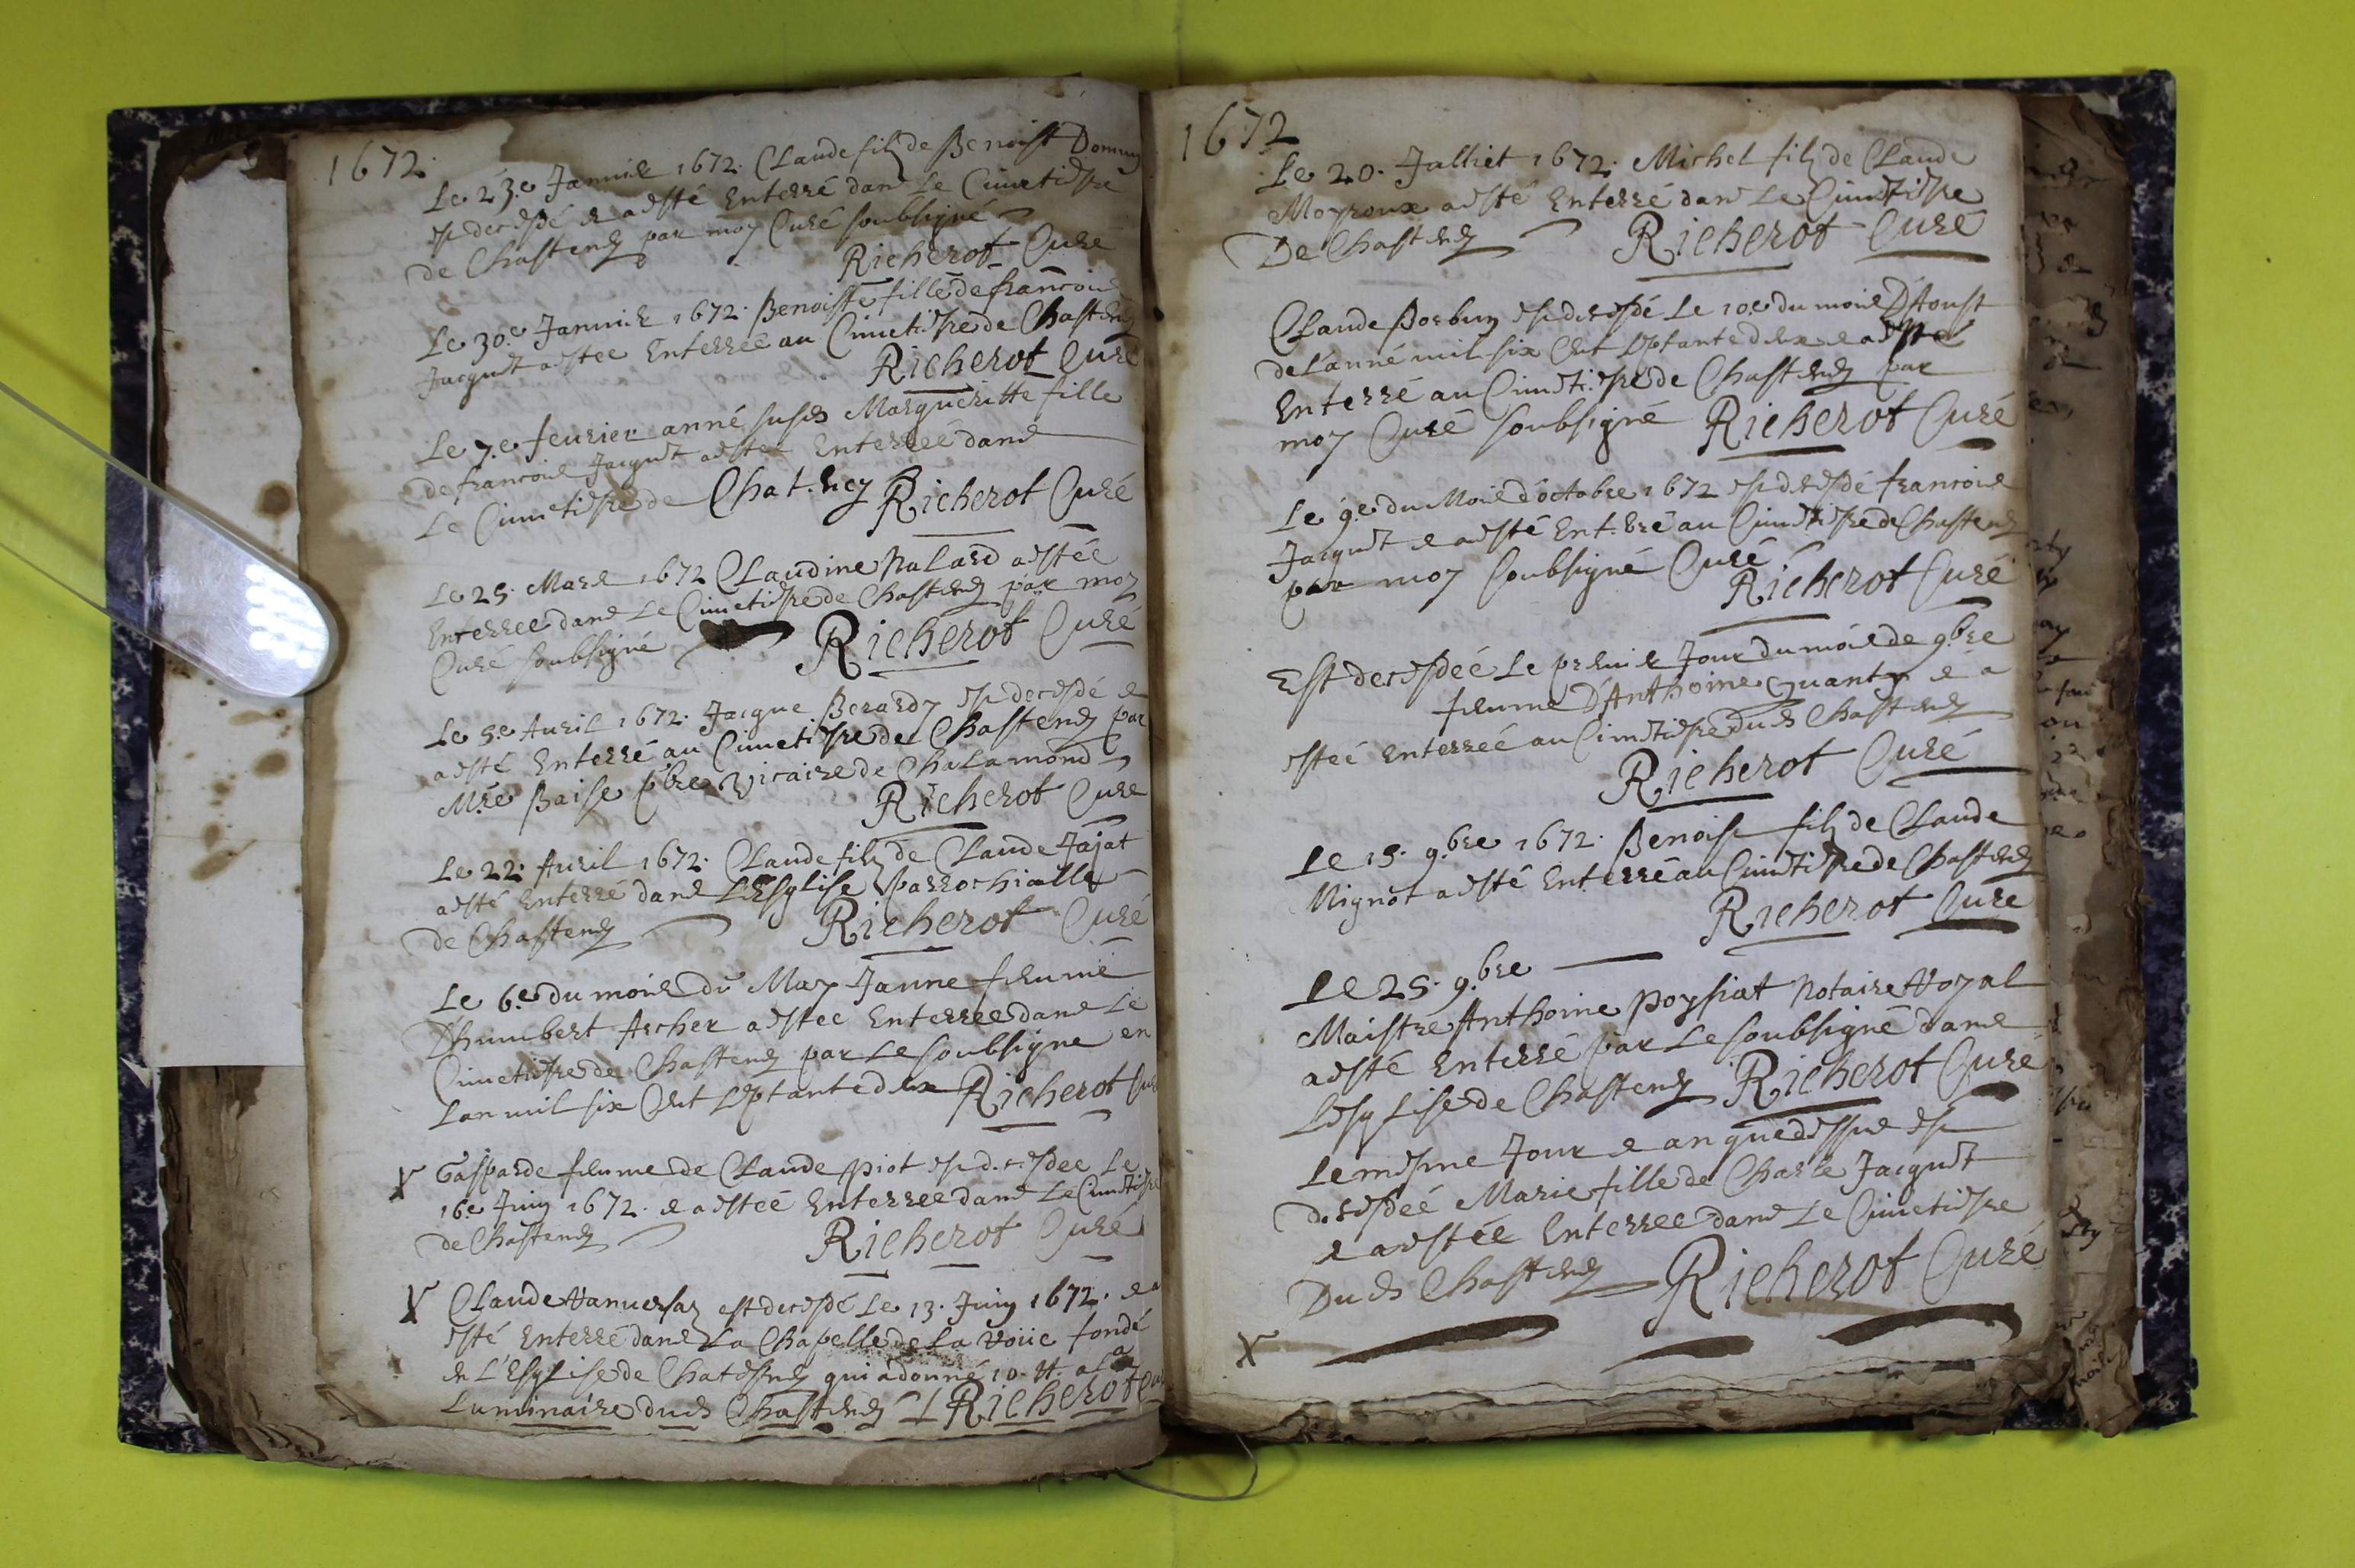 1672.
Le 23.e Januier 1672. Claude filz de Benoist Dommy
est decedé et a esté Enterré dans Le Cimetiere
de Chastenay par moy Curé soubsigné
Richerot Curé
Le 30.e Januier 1672. Benoiste fille de francois
Jacquet a estée Enterrée au Cimetiere de Chastenay
Richerot Curé
Le 7.e feurier anné susd Margueritte fille
de francois Jacquet a estée Enterrée dans
Le Cimetiere de Chateney Richerot Curé
Le 25. Mars 1672 Claudine Nalard a estée
Enterree dans Le Cimetiere de Chastenay par moy
Curé soubsigné Richerot Curé
Le 5.e Auril 1672. Jacque Berardy est decedé et
a esté Enterré au Cimetiere de Chastenay par
Mre Baise pbre vicaire de Chalamond
Richerot Curé
Le 22. Auril 1672. Claude filz de Claude Jajat
a esté Enterré dans L'Esglise parrochialle
de Chastenay Richerot Curé
Le 6.e du mois de May Janne femme
D'humbert Archer a estee Enterree dans Le
Cimetiere de Chastenay par Le soubsigne en
Lan mil six Cent septante deux Richerot Curé
Gasparde femme de Claude piot est decedee Le
16.e Juin 1672. et a esteé Enterree dans Le Cimetiere
de Chastenay Richerot Curé
Claude est decedé Le 13. Juin 1672. et a
esté Enterré dans La Chapelle de La fondé
en L'Esglise de Chatenay qui a donné 10. tt. a La
Luminaire dud Chastenay Richerot Curé
1672
Le 20. Julliet 1672. Michel filz de Claude
Moyroux a esté Enterré dans Le Cimetiere
De Chastenay Richerot Curé
Claude Borbun est decedé Le 10.e du mois D'Aoust
de L'anné mil six Cent septante deux et a esté
Enterré au Cimetiere de Chastenay par
moy Curé soubsigné Richerot Curé
Le 9.e du Mois d'octobre 1672 est decedé francois
Jacquet et a esté Enterré au Cimetiere de Chastenay
par moy soubsigné Curé
Richerot Curé
Est decedeé Le premier Jour du mois de 9.bre
femme D'Anthoine et a
esteé Enterreé au Cimetiere dud Chastenay
Richerot Curé
Le 15. 9.bre 1672. Benoist filz de Claude
Nignot a esté Enterré au Cimetiere de Chastenay
Richerot Curé
Le 25. 9.bre
Maistre Anthoine poysiat Notaire Royal
a esté Enterré par Le soubsigné dans
L'esglise de Chastenay Richerot Curé
Le mesme Jour et an que dessus est
decedeé Marie fille de Charle Jacquet
et a estée Enterree dans Le Cimetiere
Dud Chastenay Richerot Curé